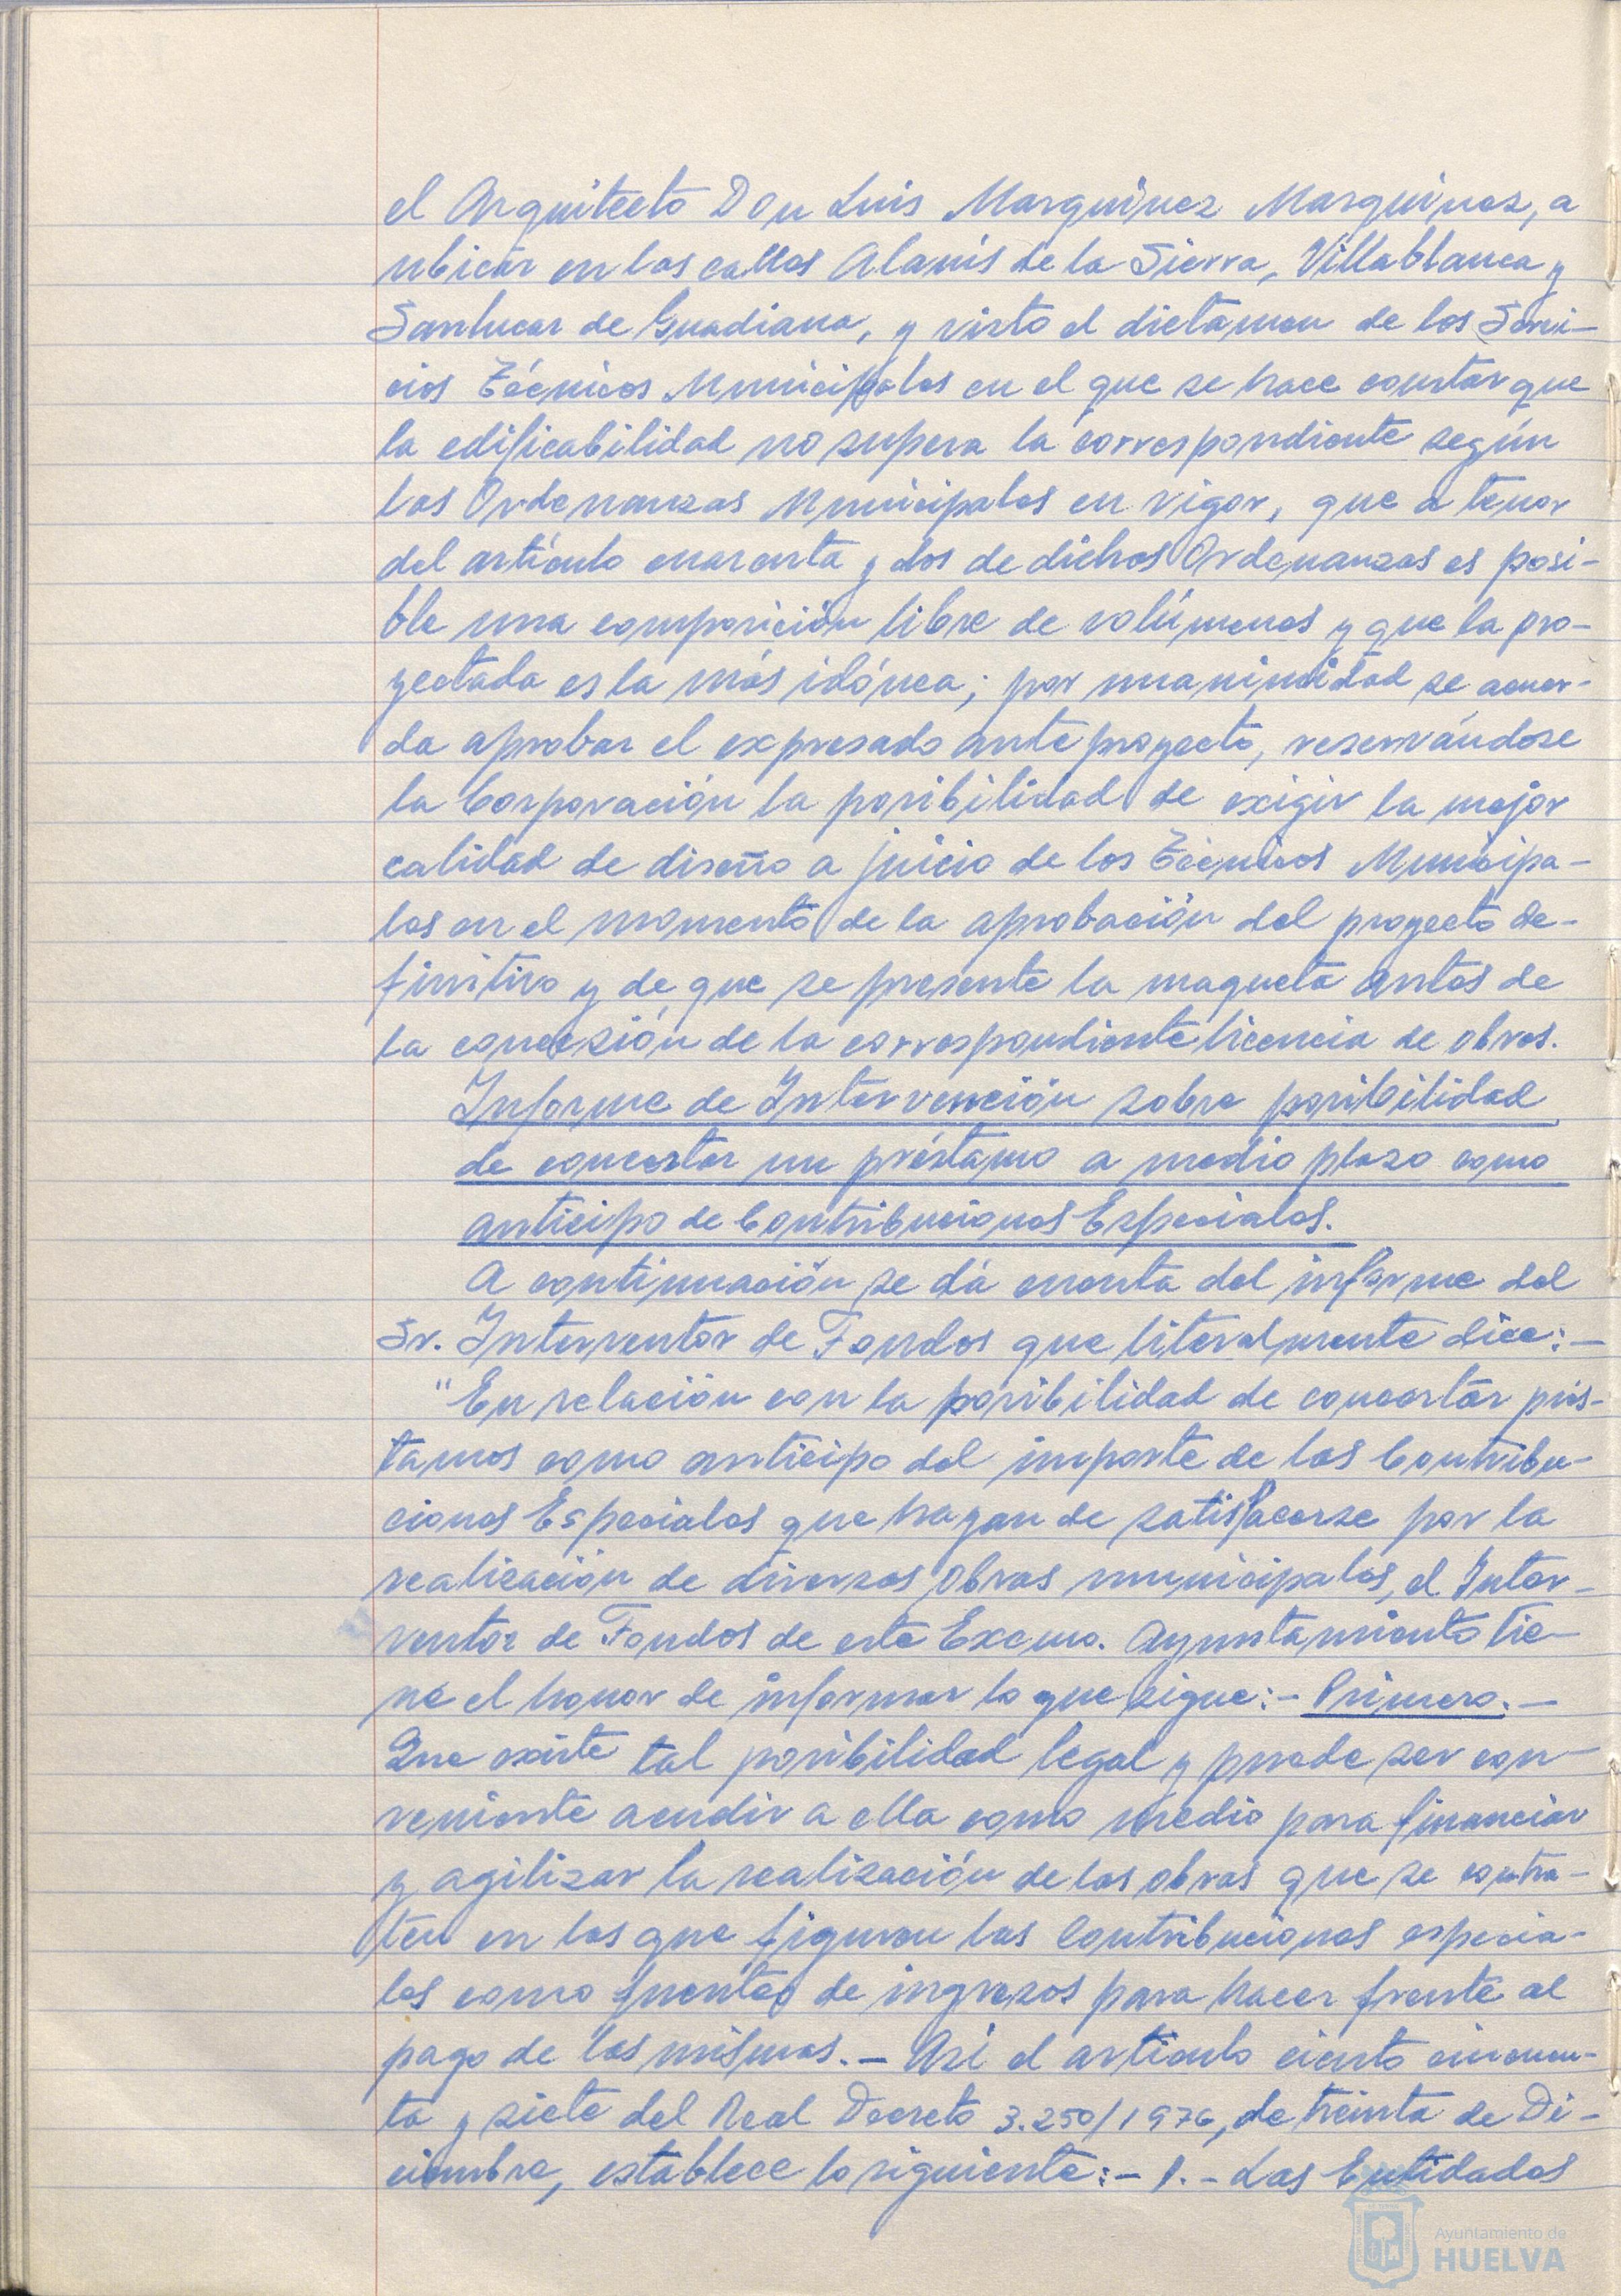 el Arquitecto Don Luis Marquínez Marquínez, a
ubicar en las calles Alanís de la Sierra, Villablanca y
Sanlucar de Guadiana, y visto el dictamen de los Servi-
cios Técnicos Municipales en el que se hace constar que
la edificabilidad no supera la correspondiente según
las Ordenanzas Municipales en vigor, que a tenor
del artículo cuarenta y dos de dichas Ordenanzas es posi-
ble una composición libre de volúmenes y que la pro-
yectada es la más idónea; por unanimidad se acuer-
da aprobar el expresado anteproyecto, reservándose
la Corporación la posibilidad de exigir la mejor
calidad de diseño a juicio de los Técnicos Municipa-
les en el momento de la aprobación del proyecto de-
finitivo y de que se presente la maqueta antes de
la concesión de la correspondiente licencia de obras.
Informe de Intervención sobre posibilidad
de concertar un préstamo a medio plazo como
anticipo de Contribuciones Especiales.
A continuación se dá cuenta del informe del
Sr. Interventor de Fondos que literalmente dice:-
"En relación con la posibilidad de concertar prés-
tamos como anticipo del importe de las Contribu-
ciones Especiales que hayan de satisfacerse por la
realización de diversas obras municipales, el Inter-
ventor de Fondos de este Excmo. Ayuntamiento tie-
ne el honor de informar lo que sigue:- Primero.-
Que existe tal posibilidad legal y puede ser con-
veniente acudir a ella como medio para financiar
y agilizar la realización de las obras que se contra-
ten en las que figuran las Contribuciones especia-
les como fuentes de ingresos para hacer frente al
pago de las mismas.- Así el artículo ciento cincuen-
ta y siete del Real Decreto 3.250/1976, de treinta de Di-
ciembre, establece lo siguiente:- 1.- Las Entidades
Ayuntamiento de
HUELVA